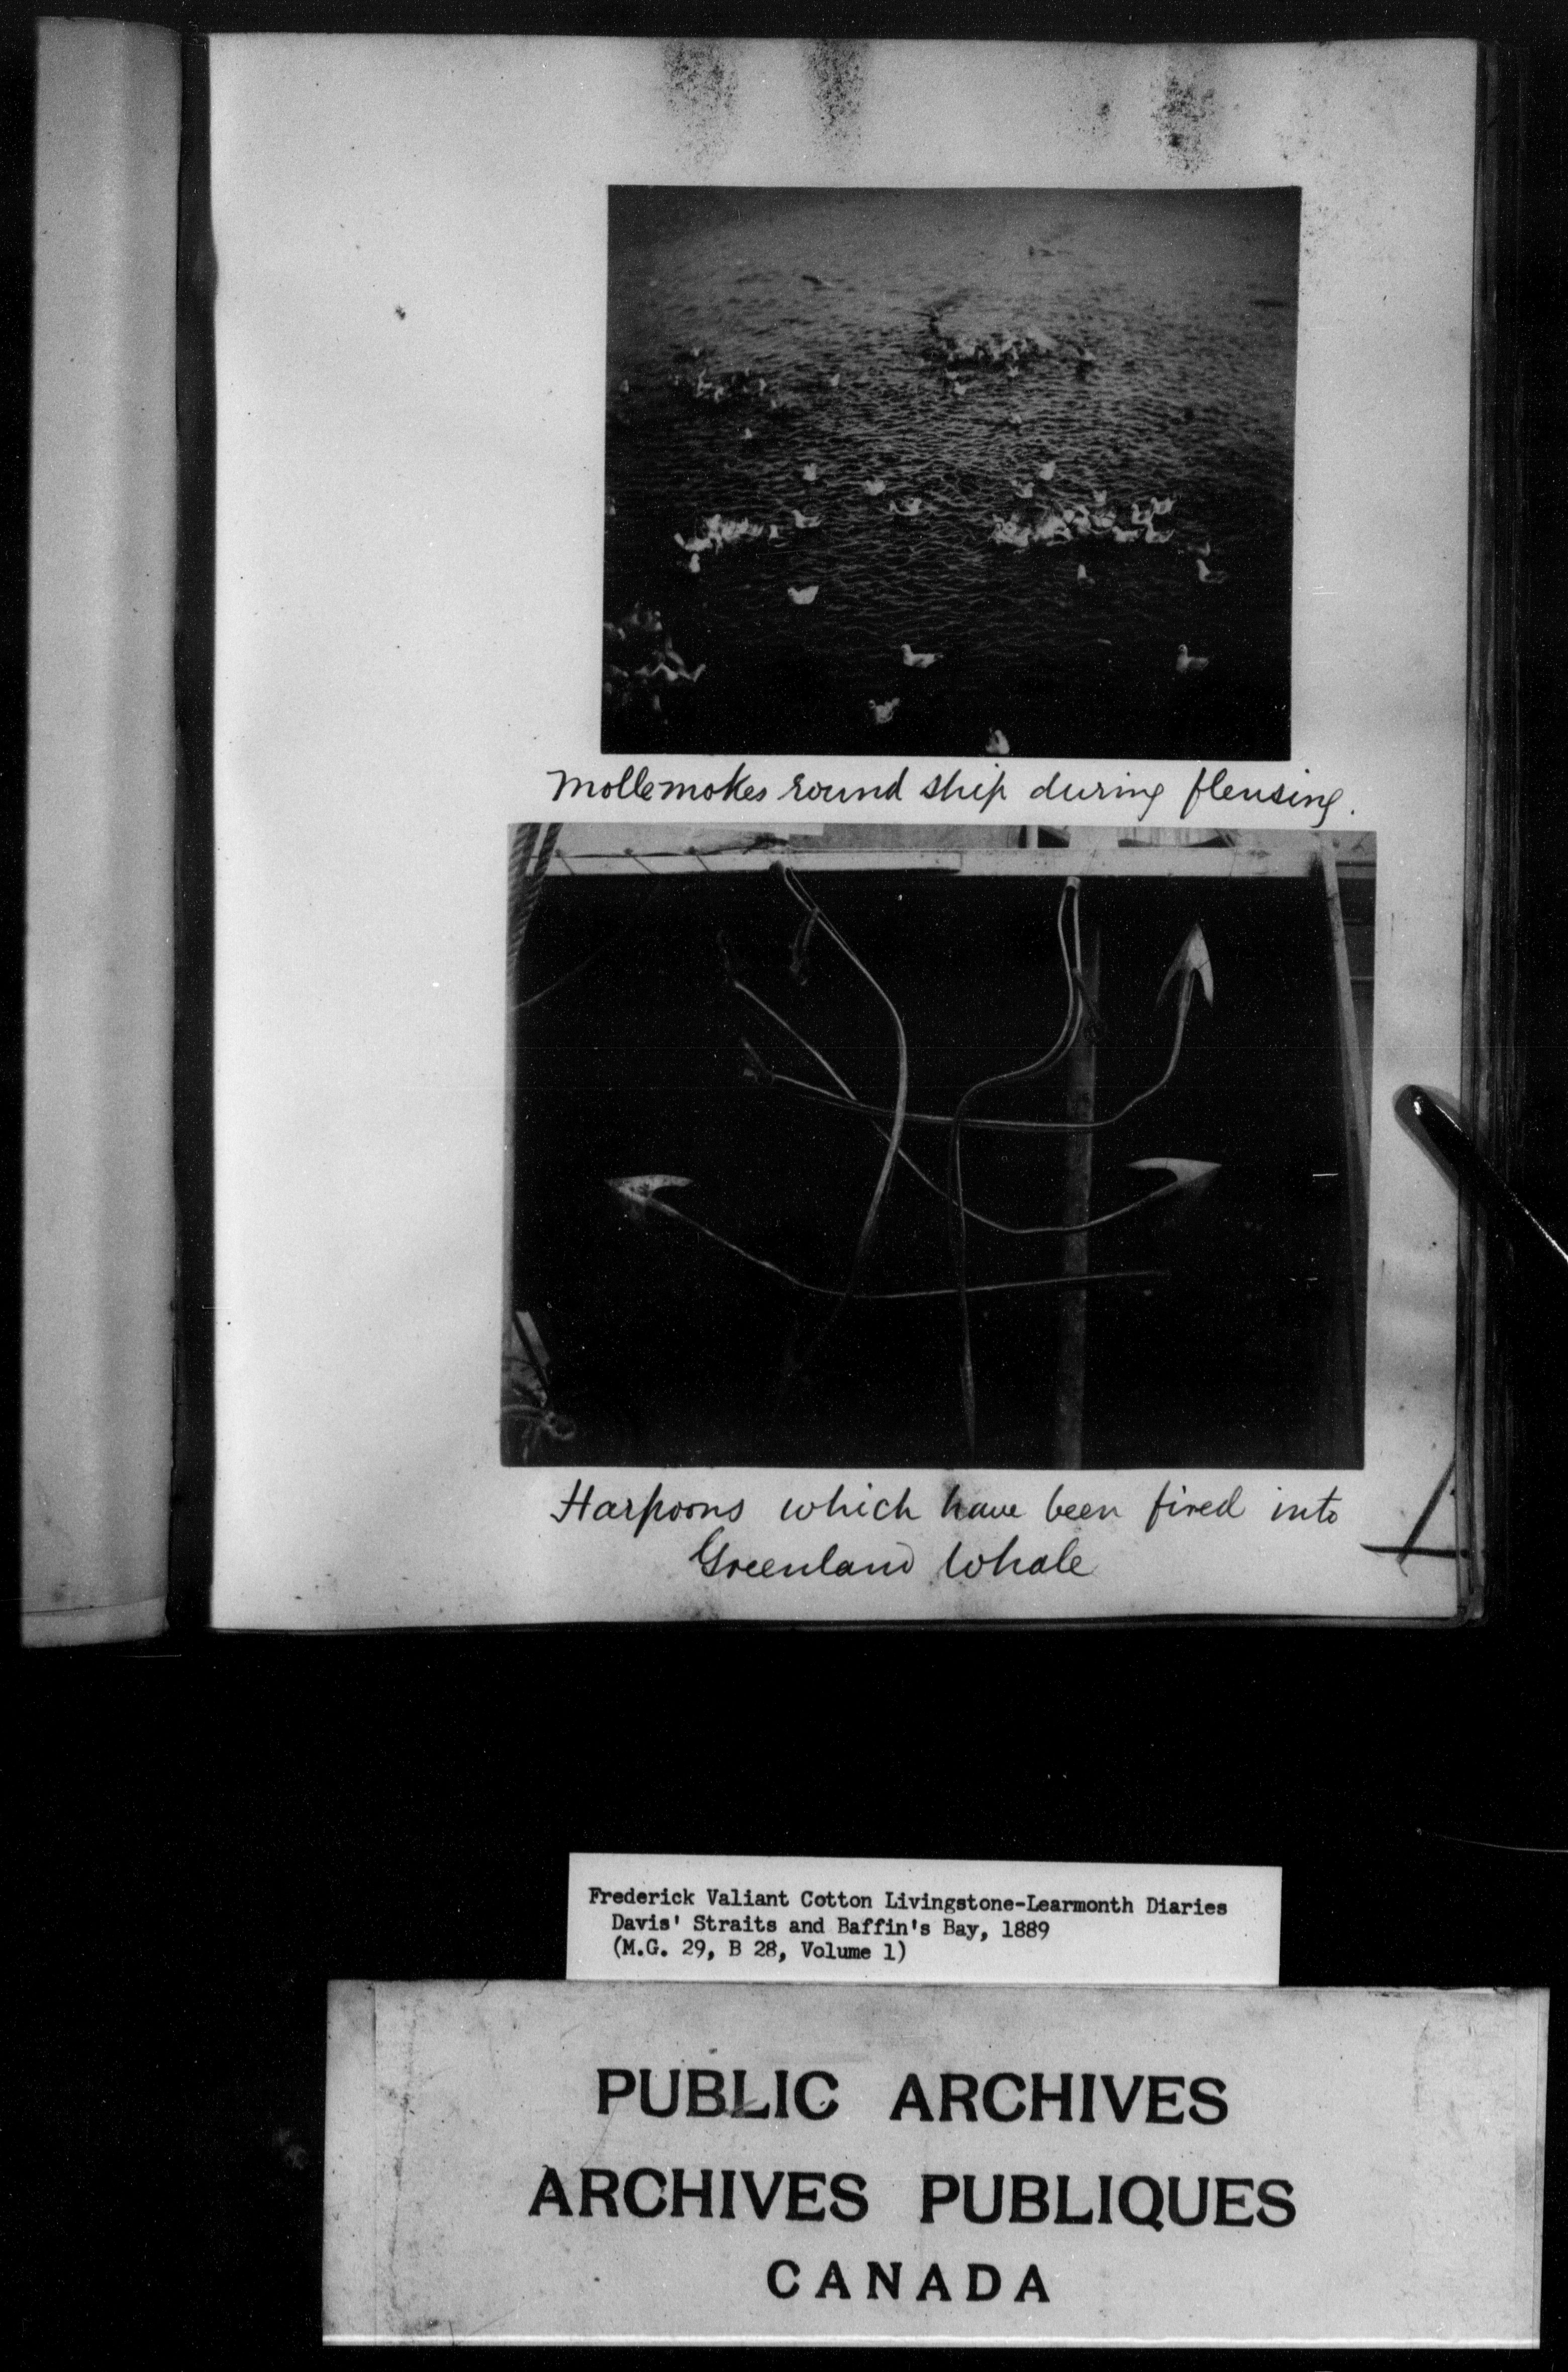 Mollemokes round ship during flensing.
Harpoons which have been fired into
Greenland Whale
Frederick Valiant Cotton Livingstone-Learmonth Diaries
Davis' Straits and Baffin's Bay, 1889
(M.G. 29, B 28, Volume 1)
PUBLIC ARCHIVES
ARCHIVES PUBLIQUES
CANADA